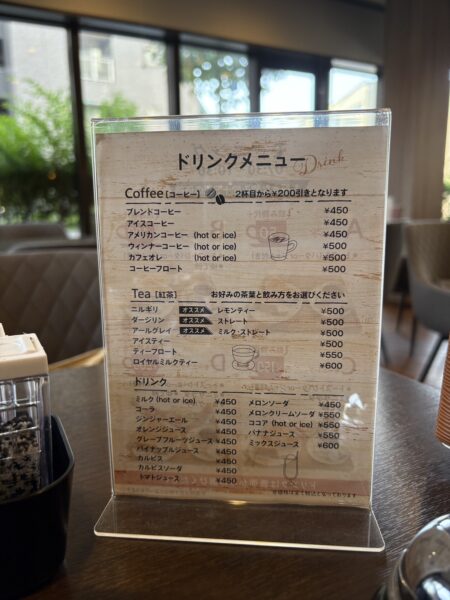 ドリンクメニュー Drink
Coffee [コーヒー] 2杯目から¥200引きとなります
ブレンドコーヒー ¥450
アイスコーヒー ¥450
アメリカンコーヒー (hot or ice) ¥450
ウィンナーコーヒー (hot or ice) ¥500
カフェオレ (hot or ice) ¥500
コーヒーフロート ¥500
Tea [紅茶] お好みの茶葉と飲み方をお選びください
ニルギリ オススメ レモンティー ¥500
ダージリン オススメ ストレート ¥500
アールグレイ オススメ ミルク・ストレート ¥500
アイスティー ¥500
ティーフロート ¥550
ロイヤルミルクティー ¥600
ドリンク
ミルク (hot or ice) ¥450 メロンソーダ ¥450
コーラ ¥450 メロンクリームソーダ ¥550
ジンジャーエール ¥450 ココア (hot or ice) ¥550
オレンジジュース ¥450 バナナジュース ¥550
グレープフルーツジュース ¥450 ミックスジュース ¥600
パイナップルジュース ¥450
カルピス ¥450
カルピスソーダ ¥450
トマトジュース ¥450